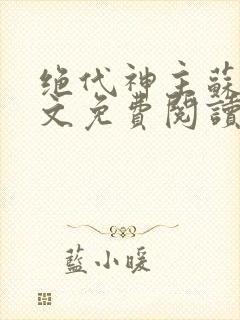 绝代神主蘇
文免費閱讀
藍小暖